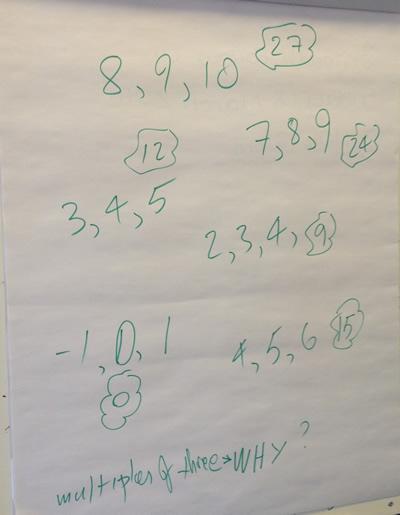 8, 9, 10 27
7, 8, 9 24
12
3, 4, 5
2, 3, 4, 9
-1, 0, 1
0
4, 5, 6 15
multiples of three→WHY?